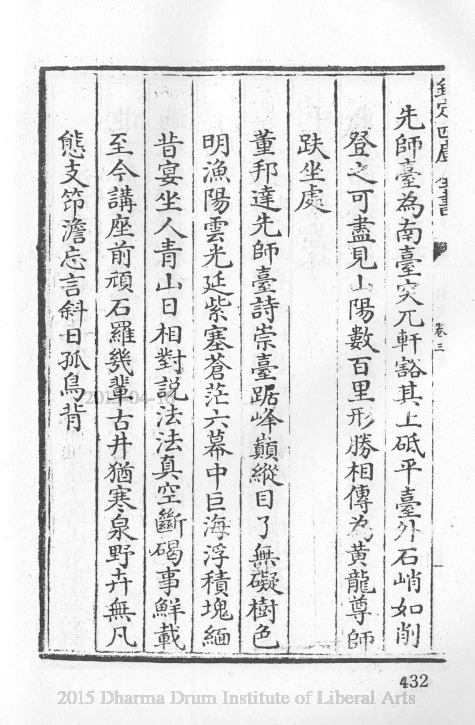 欽定四庫全書
卷三
先師臺為南臺突兀軒豁其上砥平臺外石峭如削
登之可盡見山陽數百里形勝相傳為黄龍尊師
趺坐處
董邦達先師臺詩崇臺踞峰巔縱目了無礙樹色
明漁陽雲光延紫塞蒼茫六幕中巨海浮積塊緬
昔宴坐人青山日相對説法法真空斷碣事鮮載
至今講座前頑石羅幾輩古井猶寒泉野卉無凡
態支筇澹忘言斜日孤鳥背
432
2015 Dharma Drum Institute of Liberal Arts